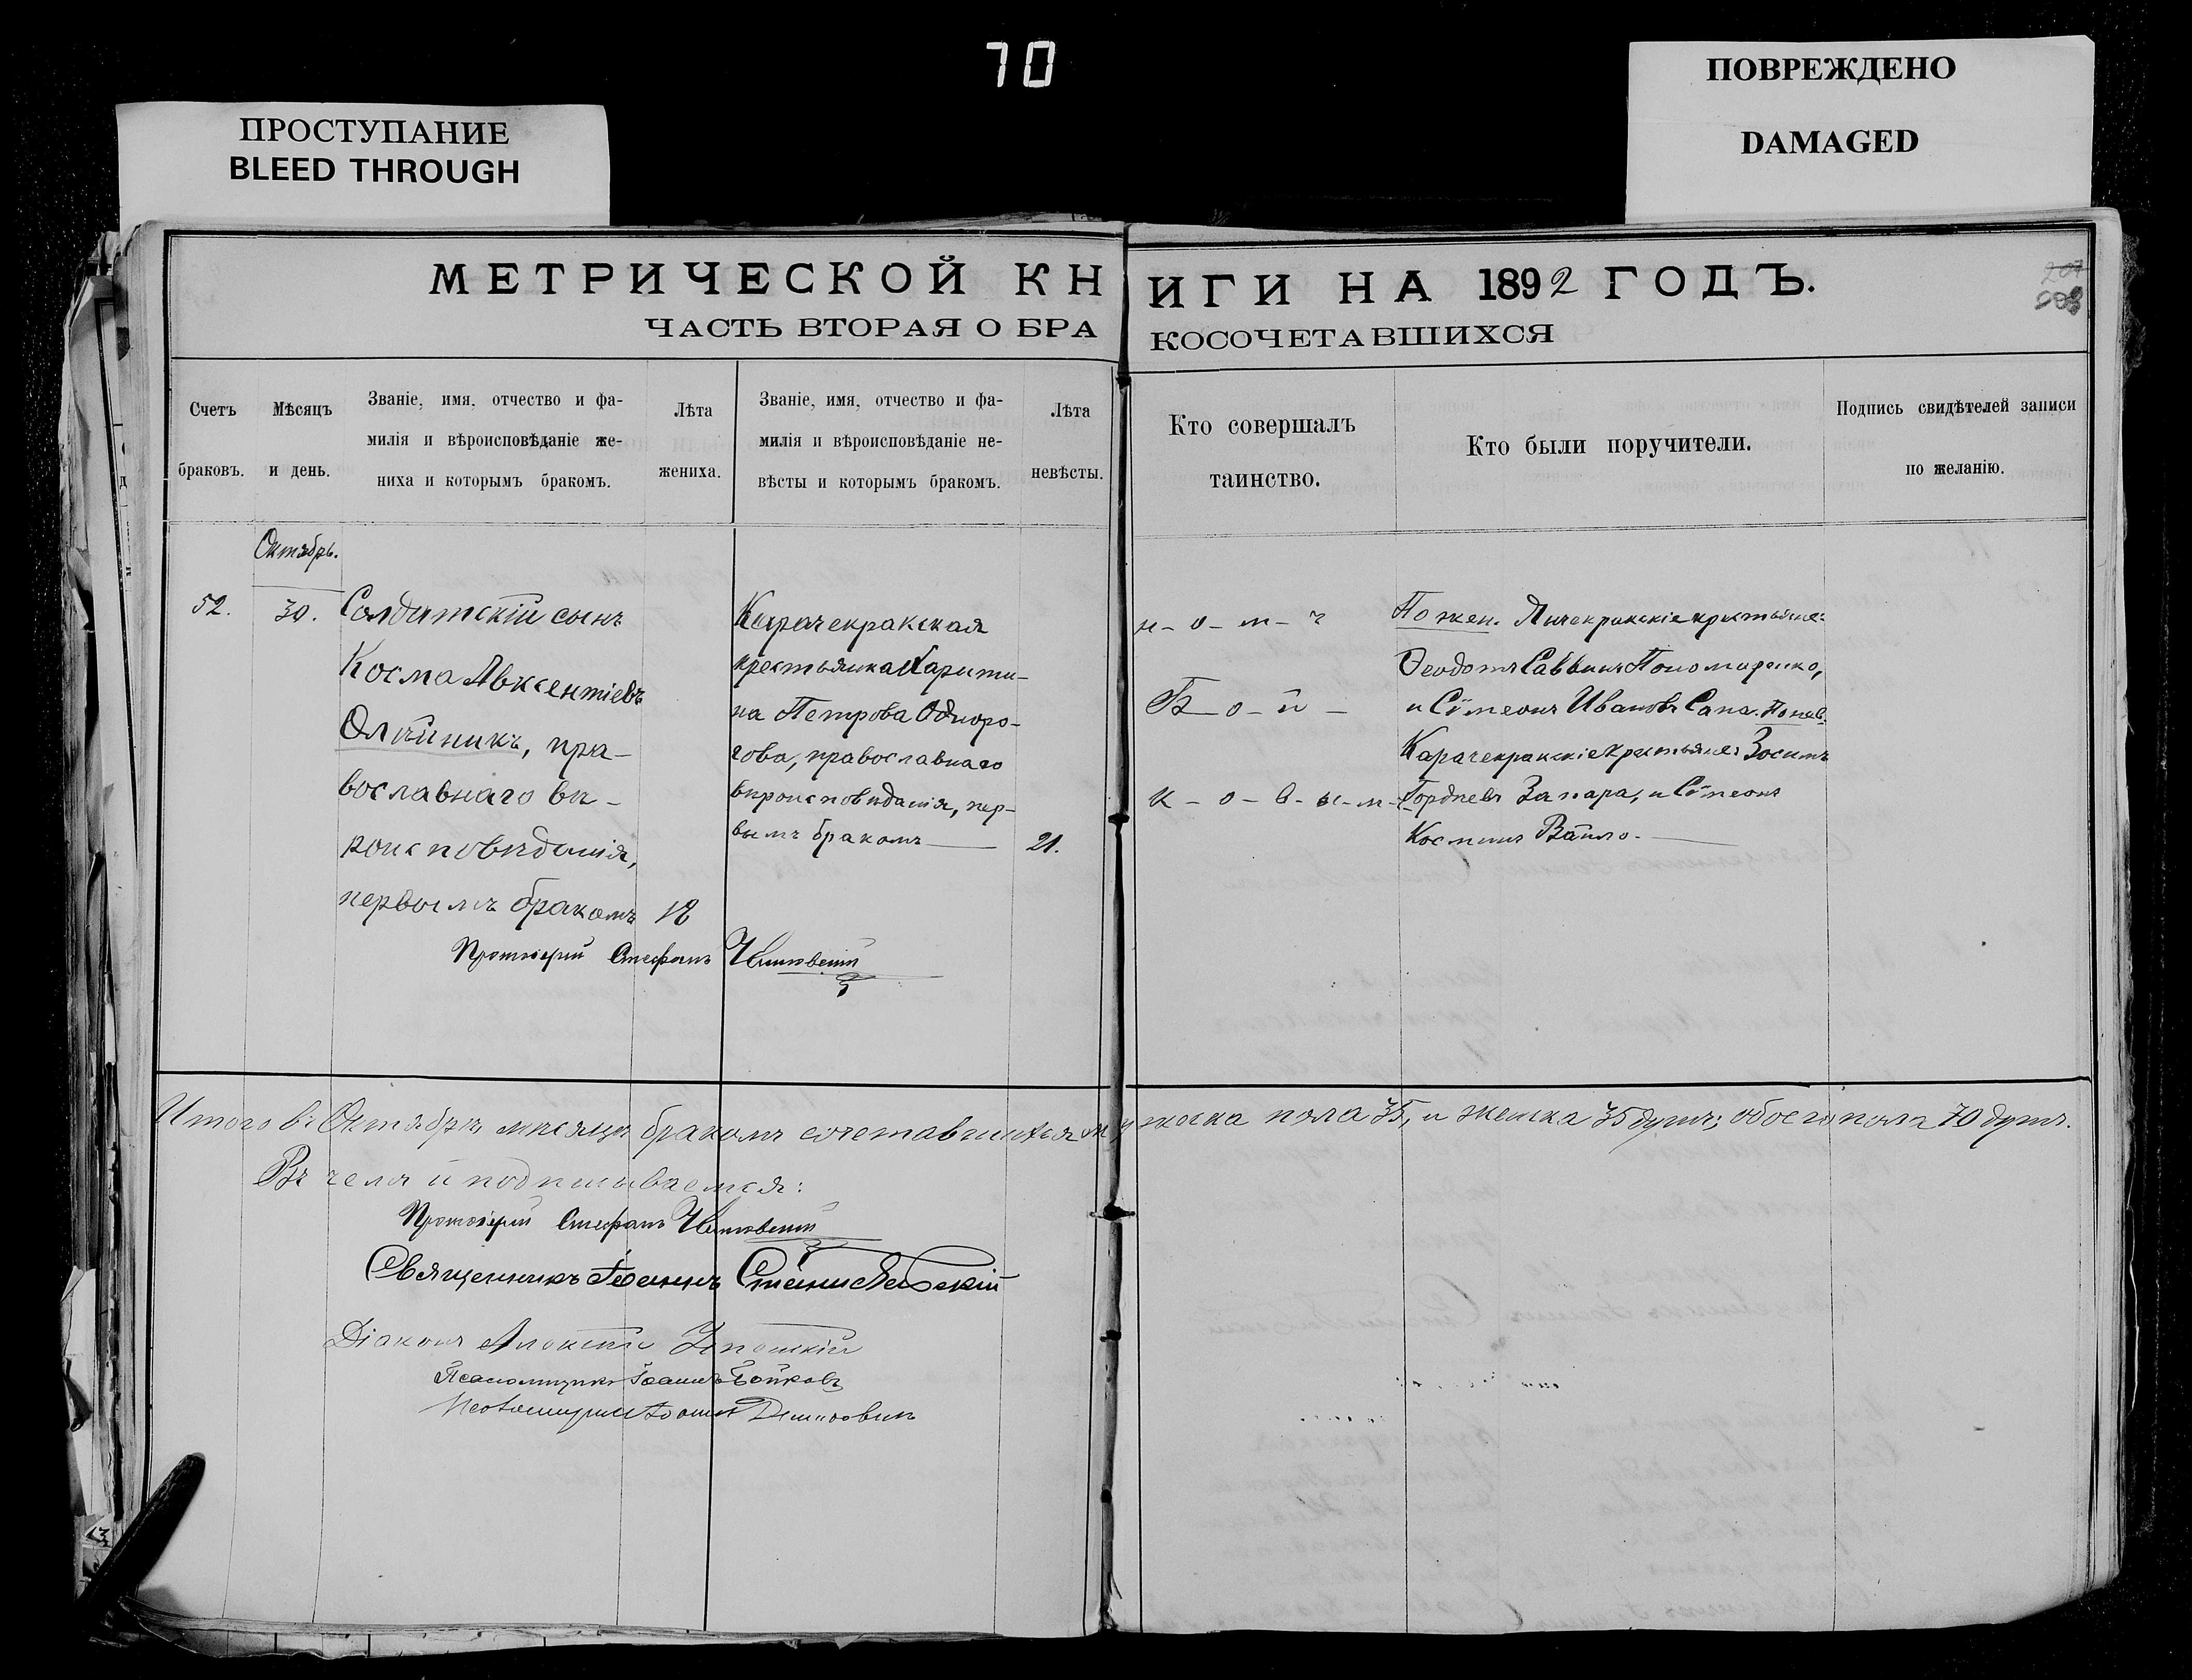 70
ПРОСТУПАНИЕ
BLEED THROUGH
ПОВРЕЖДЕНО
DAMAGED
МЕТРИЧЕСКОЙ КНИГИ НА 1892 ГОДЪ.
ЧАСТЬ ВТОРАЯ О БРАКОСОЧЕТАВШИХСЯ
207
208
Счетъ
браковъ.
Мѣсяцъ
и день.
Званіе, имя, отчество и фа-
милія и вѣроисповѣданіе же-
ниха и которымъ бракомъ.
Лѣта
жениха.
Званіе, имя, отчество и фа-
милія и вѣроисповѣданіе не-
вѣсты и которымъ бракомъ.
Лѣта
невѣсты.
Кто совершалъ
таинство.
Кто были поручители.
Подпись свидѣтелей записи
по желанію.
Октябрь.
52.
30.
Солдатскій сынъ
Косма Авксентіевъ
Олѣйникъ, пра-
вославнаго вѣ-
роисповѣданія,
первымъ бракомъ
18
Карачекракская
крестьянка Харити-
на Петрова Однoро-
гова, православнаго
вѣроисповѣданія, пер-
вымъ бракомъ
21.
Б - о - й -
к - о - в - ы - м -
По жен. Янчекракскіе крестьяне:
Ѳеодотъ Саввинъ Пономаренко,
и Сѵмеонъ Ивановъ Сапа. По нев.
Карачекракскіе крестьяне: Зосимъ
Гордѣевъ Запара, и Сѵмеонъ
Косминъ Вайло.
Протоіерей Стефанъ
Итого въ Октябрѣ мѣсяцѣ бракомъ сочетавшихся мужеска пола 35, и женска 35 душъ; обоего пола 70 душъ.
Въ чемъ и подписываемся:
Протоіерей Стефанъ
Священникъ Іоаннъ Станиславскій
Діаконъ Алексѣй
Псаломщикъ Іоаннъ Бойковъ